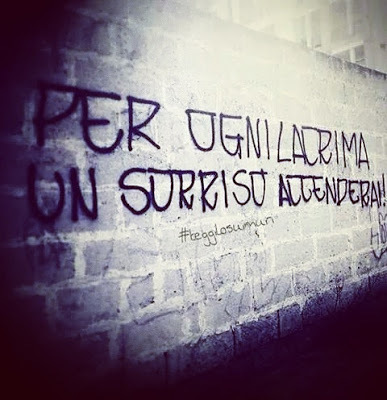 PER OGNI LACRIMA
UN SORRISO ATTENDERAI!
#leggilosuimuri